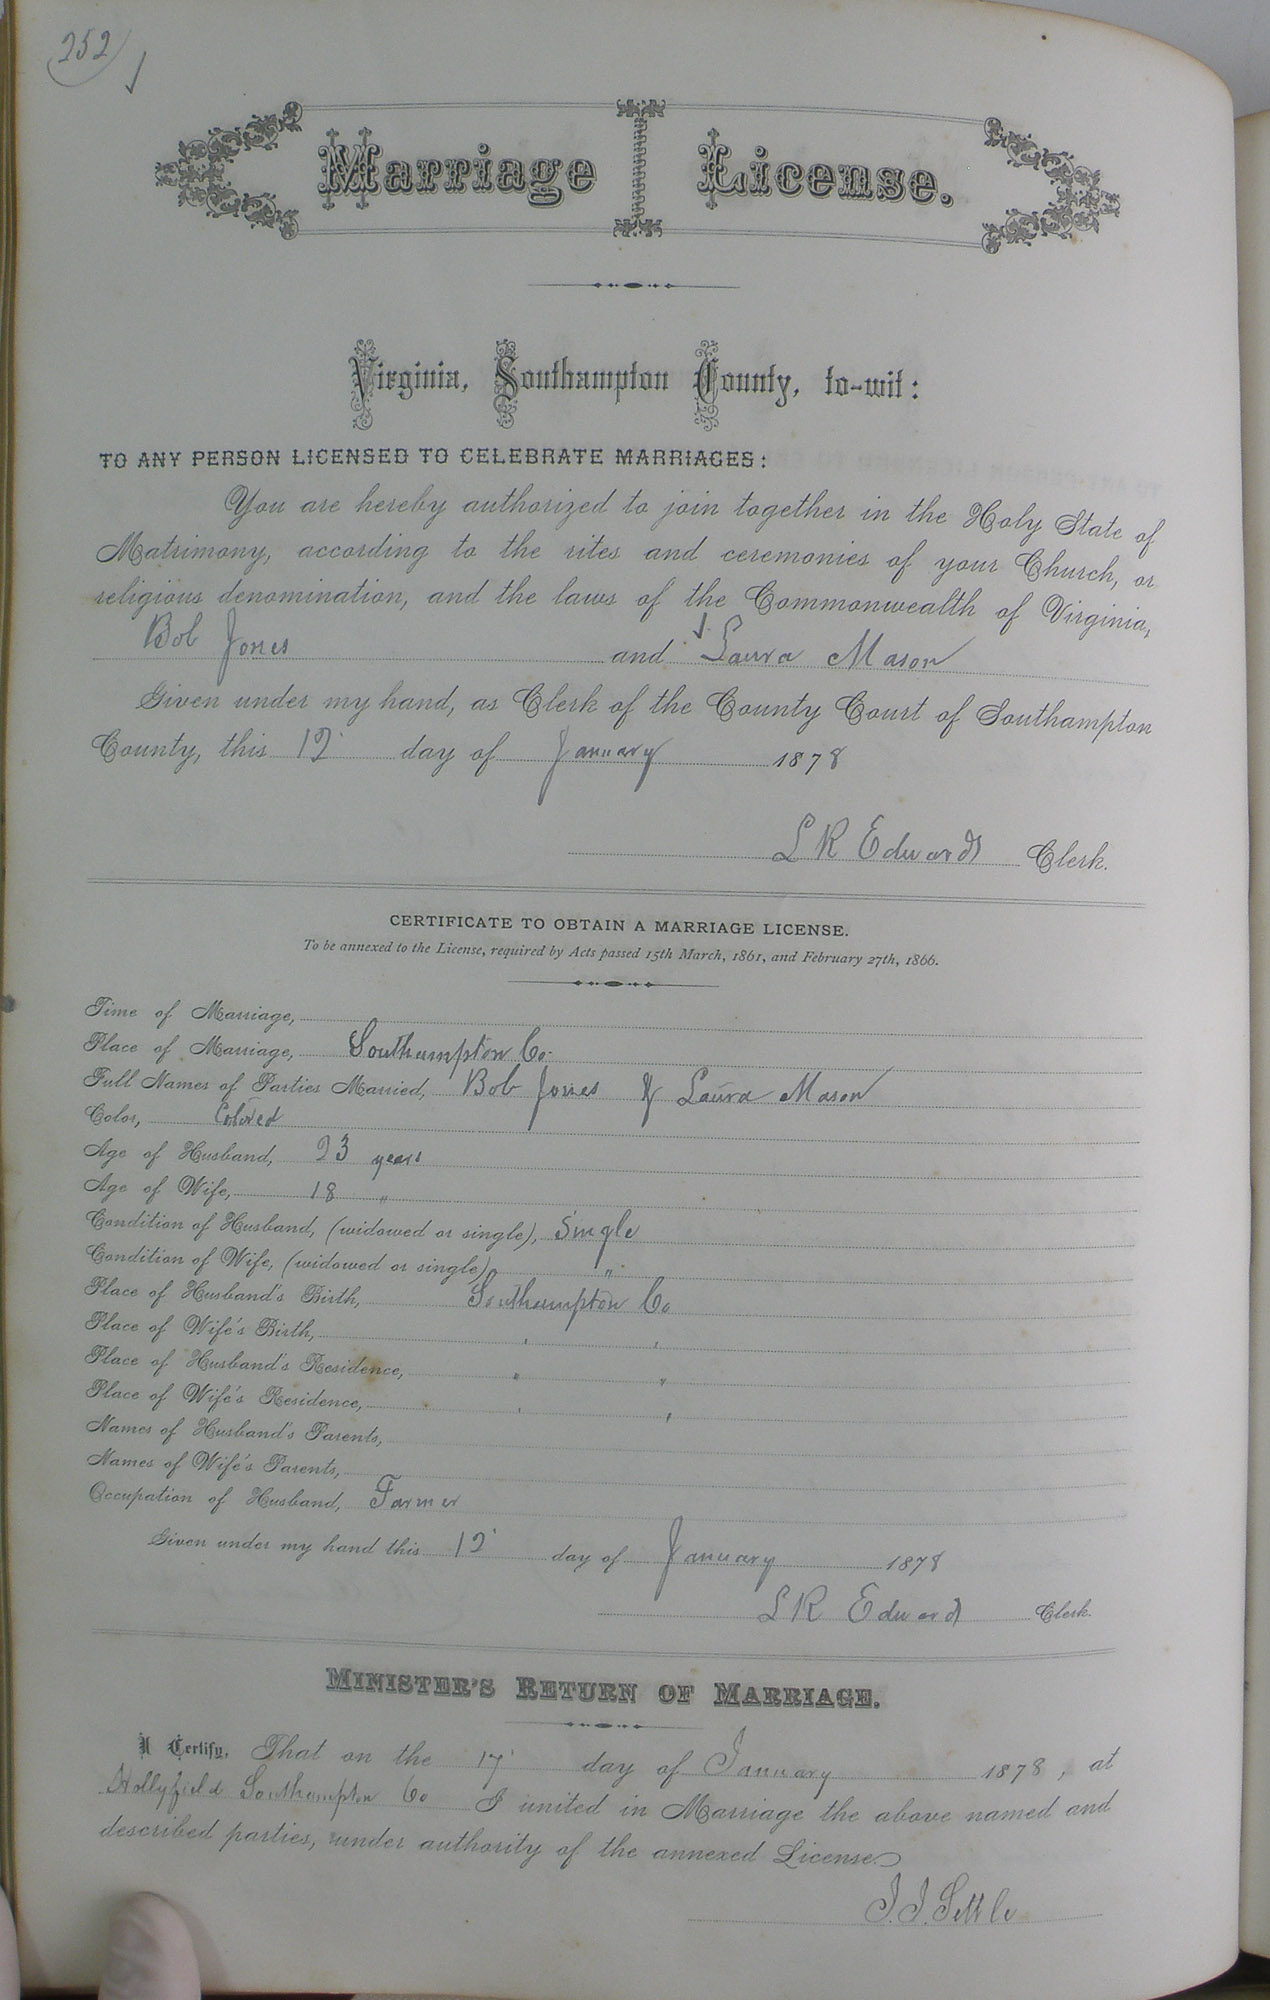 252
Marriage License.
Virginia, Southampton County, to-wit:
TO ANY PERSON LICENSED TO CELEBRATE MARRIAGES:
You are hereby authorized to join together in the Holy State of
Matrimony, according to the rites and ceremonies of your Church, or
religious denomination, and the laws of the Commonwealth of Virginia,
Bob Jones and Laura Mason
Given under my hand, as Clerk of the County Court of Southampton
County, this 12 day of January 1878
L R Edwards Clerk.
CERTIFICATE TO OBTAIN A MARRIAGE LICENSE.
To be annexed to the License, required by Acts passed 15th March, 1861, and February 27th, 1866.
Time of Marriage,
Place of Marriage, Southampton Co.
Full Names of Parties Married, Bob Jones & Laura Mason
Color, Colored
Age of Husband, 23 years
Age of Wife, 18 "
Condition of Husband, (widowed or single), Single
Condition of Wife, (widowed or single), "
Place of Husband's Birth, Southampton Co
Place of Wife's Birth, " "
Place of Husband's Residence, " "
Place of Wife's Residence, " "
Names of Husband's Parents,
Names of Wife's Parents,
Occupation of Husband, Farmer
Given under my hand this 12 day of January 1878
L R Edwards Clerk.
MINISTER'S RETURN OF MARRIAGE.
I Certify, That on the 17 day of January 1878, at
Hollyfield Southampton Co I united in Marriage the above named and
described parties, under authority of the annexed License.
J. J. Settle